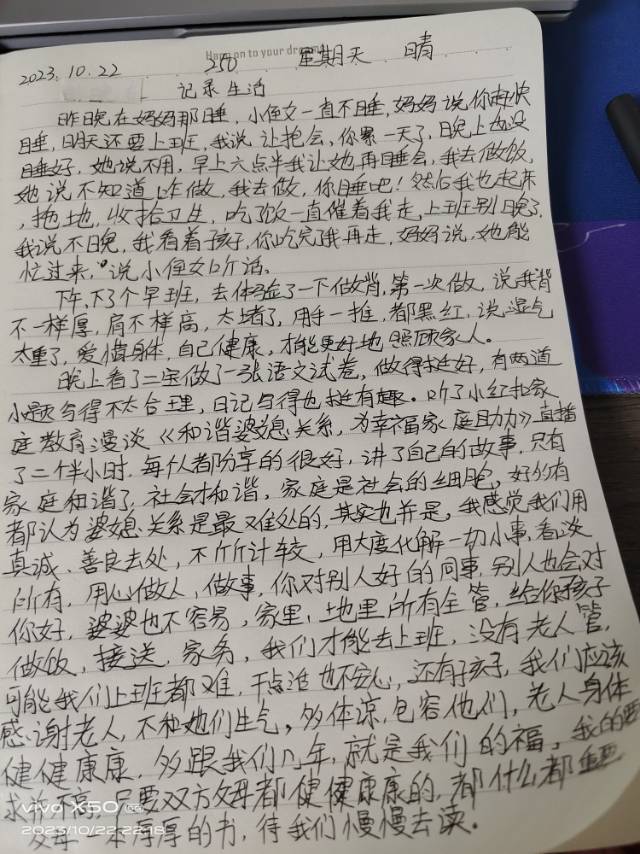 Hang on to your dreams
2023.10.22 250 星期天 晴
记录生活
昨晚在妈妈那睡，小侄女一直不睡，妈妈说，你赶快
睡，明天还要上班，我说让抱会，你累一天了，晚上也没
睡好，她说不用，早上六点半我让她再睡会，我去做饭，
她说不知道咋做，我去做，你睡吧！然后我也起床
，拖地，收拾卫生，吃了饭一直催着我走，上班别晚了，
我说不晚，我看着孩子，你吃完了我再走，妈妈说，她能
忙过来，说小侄女听话。
下午，下了个早班，去体验了一下做背，第一次做，说我背
不一样厚，肩不一样高，太堵了，用手一推，都黑红，说湿气
太重了，爱惜身体，自己健康，才能更好地照顾家人。
晚上看了二宝做了一张语文试卷，做得挺好，有两道
小题写得不太合理，日记写得也挺有趣。听了小红抱家
庭教育漫谈《和谐婆媳关系，为幸福家庭助力》直播
了二个半小时，每个人都分享的很好，讲了自己的故事，只有
家庭和谐了，社会才和谐，家庭是社会的细胞，好的有
都认为婆媳关系是最难处的，其实也并是，我感觉我们用
真诚、善良去处，不斤斤计较，用大度化解一切小事，看淡
所有，用心做人，做事，你对别人好的同事，别人也会对
你好，婆婆也不容易，家里，地里所有全管，给你孩子
做饭，接送，家务，我们才能去上班，没有老人管，
可能我们上班都难，干点活也不安心，还有孩子，我们应该
感谢老人，不和她们生气，多体凉，包容他们，老人身体
健健康康，多跟我们几年，就是我们的福，我的要
求并不高，只要双方父母都健健康康的，都什么都重要
父母一本厚厚的书，待我们慢慢去读。
vivo X50
2023/10/22 22:18